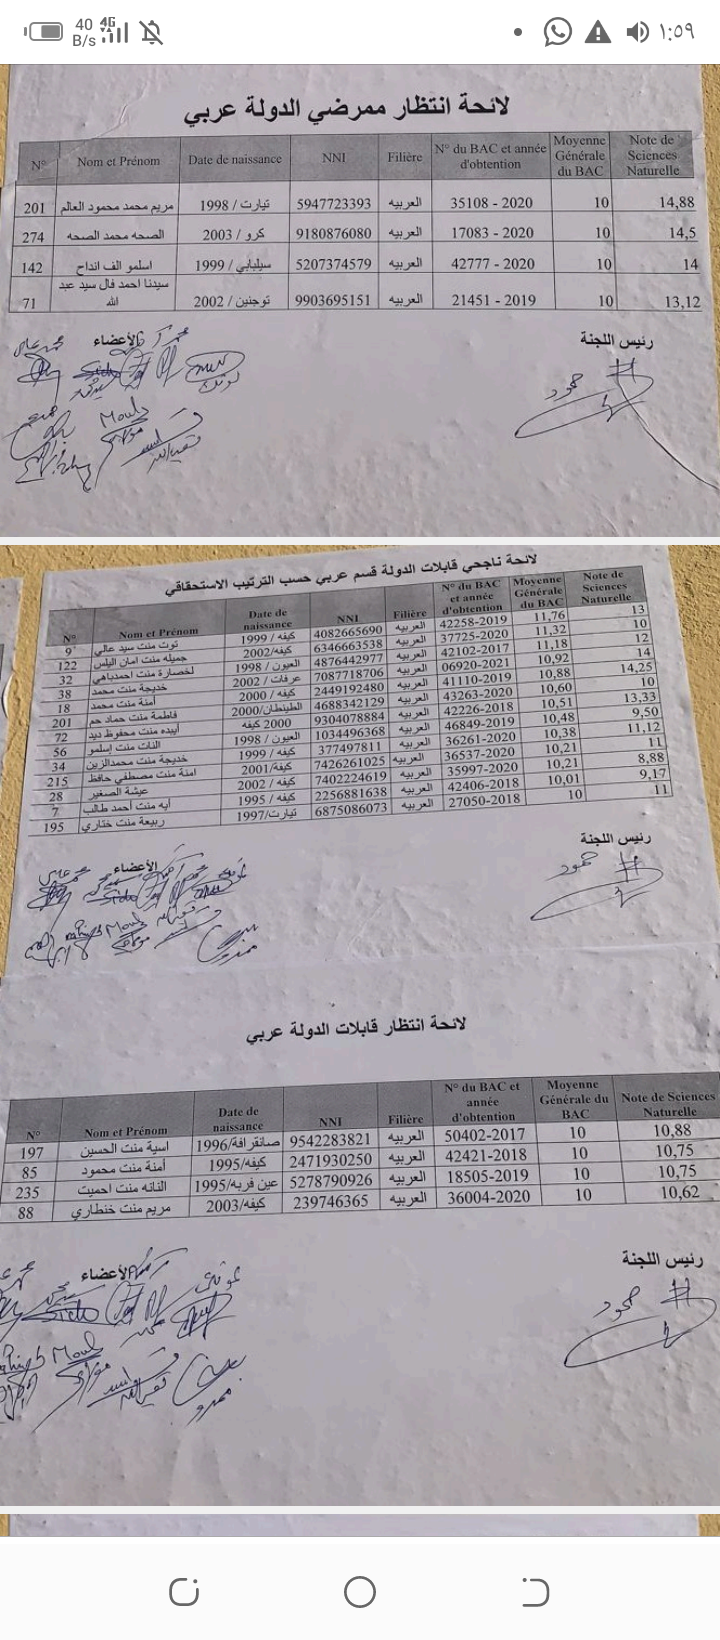 40 B/s 4G ١:٥٩
لائحة انتظار ممرضي الدولة عربي
N° Nom et Prénom Date de naissance NNI Filière N° du BAC et année d'obtention Moyenne Générale du BAC Note de Sciences Naturelle
201 مريم محمد محمود العالم تيارت / 1998 5947723393 العربيه 35108 - 2020 10 14,88
274 الصحه محمد الصحه كرو / 2003 9180876080 العربيه 17083 - 2020 10 14,5
142 اسلمو الف انداح سيليبابي / 1999 5207374579 العربيه 42777 - 2020 10 14
71 سيدنا احمد فال سيد عبد الله توجنين / 2002 9903695151 العربيه 21451 - 2019 10 13,12
رئيس اللجنة الأعضاء
لائحة ناجحي قابلات الدولة قسم عربي حسب الترتيب الاستحقاقي
N° Nom et Prénom Date de naissance NNI Filière N° du BAC et année d'obtention Moyenne Générale du BAC Note de Sciences Naturelle
9 توت منت سيد عالي كيفه / 1999 4082665690 العربيه 42258-2019 11,76 13
122 جميله منت امان اليلس كيفه/2002 6346663538 العربيه 37725-2020 11,32 10
32 لخصارة منت احمدباهي العيون / 1998 4876442977 العربيه 42102-2017 11,18 12
38 خديجة منت محمد عرفات / 2002 7087718706 العربيه 06920-2021 10,92 14
18 أمنة منت محمد كيفه / 2000 2449192480 العربيه 41110-2019 10,88 14,25
201 فاطمة منت حماد حم الطينطان/2000 4688342129 العربيه 43263-2020 10,60 10
72 أبيده منت محفوظ ديد 2000 كيفه 9304078884 العربيه 42226-2018 10,51 13,33
56 النات منت إسلمو العيون / 1998 1034496368 العربيه 46849-2019 10,48 9,50
34 خديجة منت محمدالزين كيفه / 1999 377497811 العربيه 36261-2020 10,38 11,12
215 امنة منت مصطفي حافظ كيفه/2001 7426261025 العربيه 36537-2020 10,21 11
28 عيشة الصغير كيفه / 2002 7402224619 العربيه 35997-2020 10,21 8,88
7 أيه منت أحمد طالب كيفه / 1995 2256881638 العربيه 42406-2018 10,01 9,17
195 ربيعة منت ختاري تيارت/1997 6875086073 العربيه 27050-2018 10 11
رئيس اللجنة الأعضاء
لائحة انتظار قابلات الدولة عربي
N° Nom et Prénom Date de naissance NNI Filière N° du BAC et année d'obtention Moyenne Générale du BAC Note de Sciences Naturelle
197 اسية منت الحسين صانقرافة/1996 9542283821 العربيه 50402-2017 10 10,88
85 أمنة منت محمود كيفه/1995 2471930250 العربيه 42421-2018 10 10,75
235 النانه منت احميت عين فربه/1995 5278790926 العربيه 18505-2019 10 10,75
88 مريم منت خنطاري كيفه/2003 239746365 العربيه 36004-2020 10 10,62
رئيس اللجنة الأعضاء